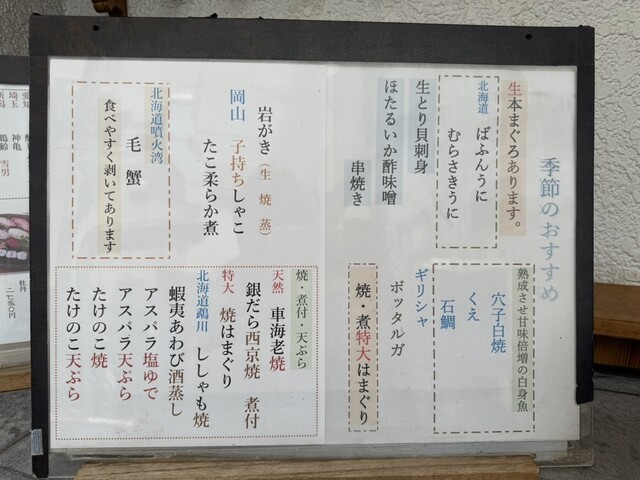 季節のおすすめ
生本まぐろあります。
北海道
ばふんうに
むらさきうに
生とり貝刺身
ほたるいか酢味噌
串焼き
熟成させ甘味倍増の白身魚
穴子白焼
くえ
石鯛
ギリシャ
ボッタルガ
焼・煮特大はまぐり
岩がき（生 焼 蒸）
岡山 子持ちしゃこ
たこ柔らか煮
北海道噴火湾
毛蟹
食べやすく剥いてあります
焼・煮付・天ぷら
天然 車海老焼
銀だら西京焼 煮付
特大 焼はまぐり
北海道鵡川 ししゃも焼
蝦夷あわび酒蒸し
アスパラ塩ゆで
アスパラ天ぷら
たけのこ焼
たけのこ天ぷら
愛知
埼玉
新潟
神亀
鶴齢
雪男
牡丹
二七五〇円